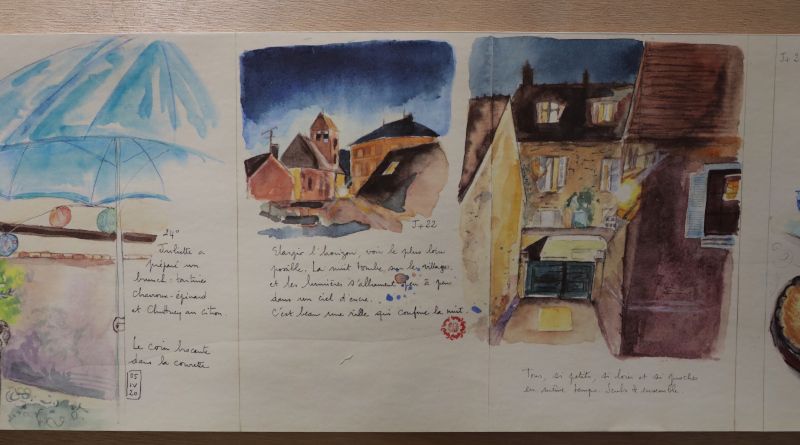 24°
Juliette a
préparé un
brunch : tartines
chèvre-épinard
et Chutney au citron.
Le coin brocante
dans la courette
05
IV
20
J+22
Elargir l'horizon, voir le plus loin
possible. La nuit tombe sur le village
et les lumières s'allument peu à peu
dans un ciel d'encre.
C'est beau une ville qui confine la nuit
Tous, si petits, si loin et si proches
en même temps. Seuls & ensemble.
J+2